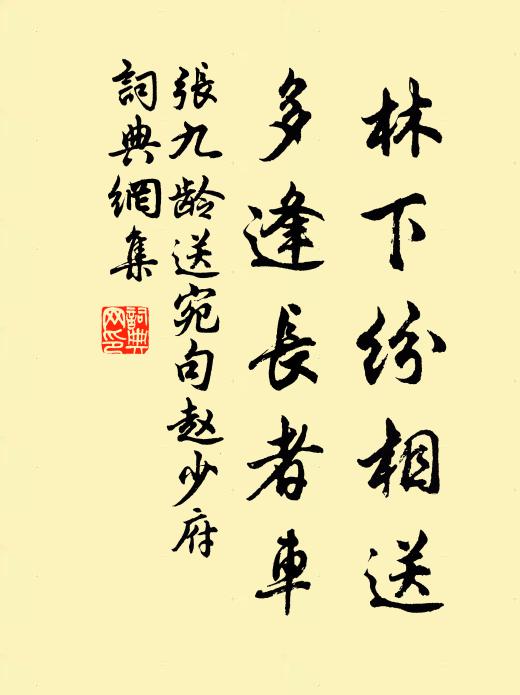 林下纷相送
多逢長者車
張九龄送宛句赵少府
詞典網集
詞典網印